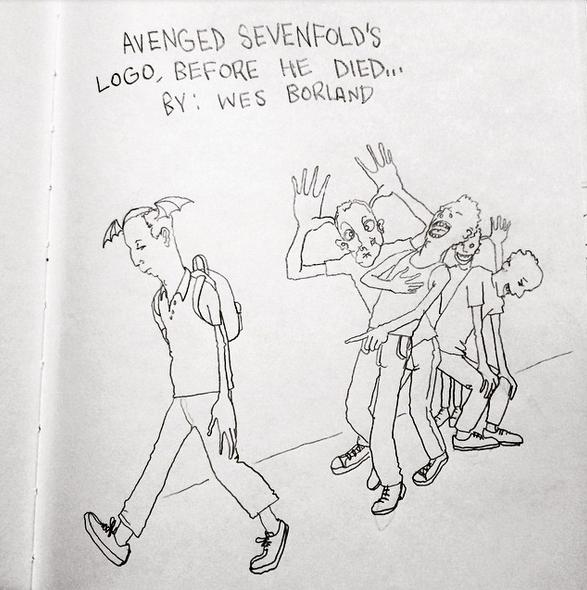 AVENGED SEVENFOLD'S
LOGO, BEFORE HE DIED...
BY: WES BORLAND